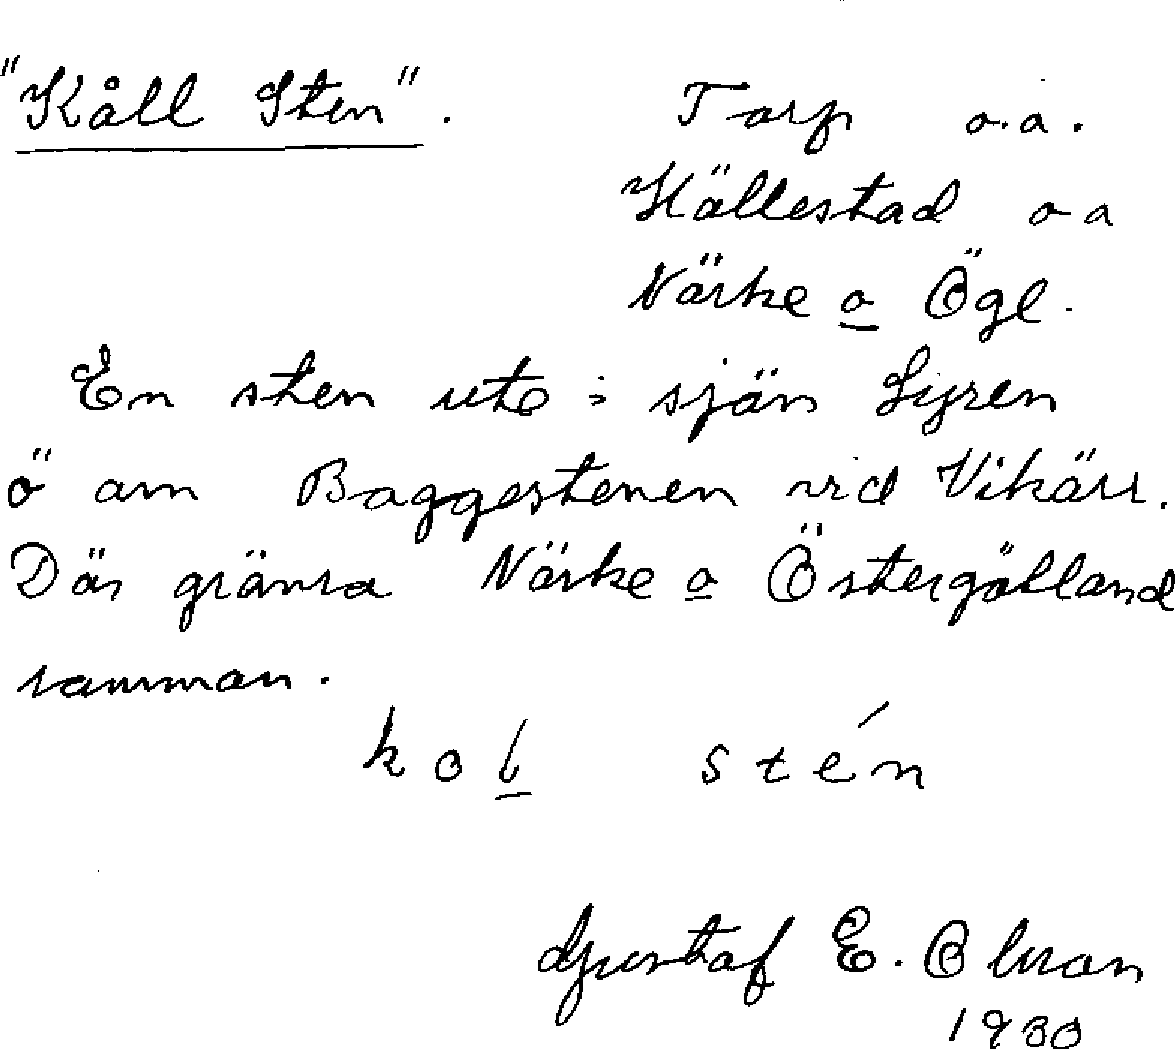 "Kåll Sten". Torp o.a.
Hällestad o a
Närke o Ögl.
En sten ute i sjön Lyren
ö om Baggestenen vid Vikärr.
Där gränsa Närke o Östergötland
samman.
kol stén
Gustaf E. Olson
1930